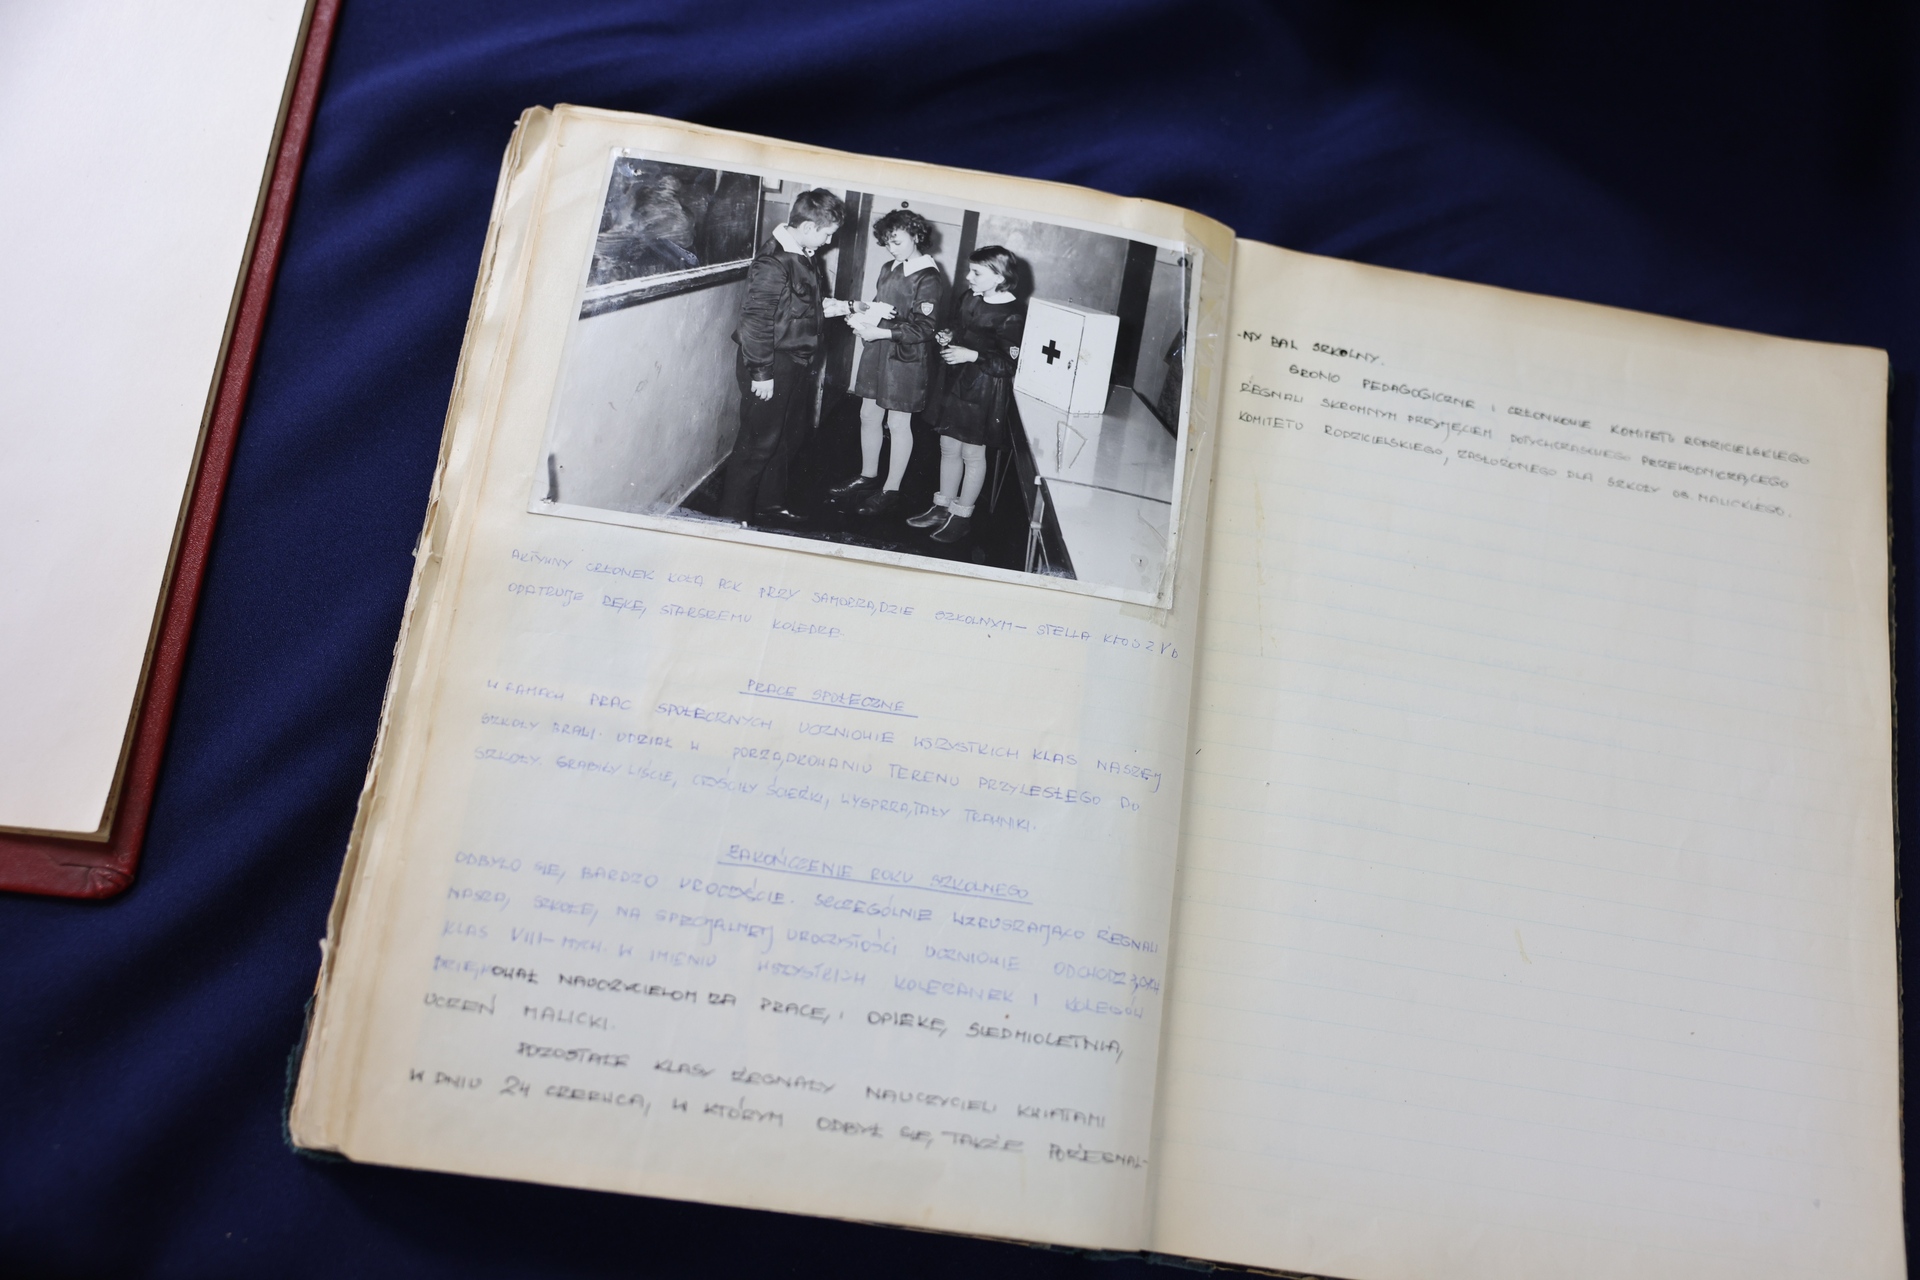 AKTYWNY CZŁONEK KOŁA PCK PRZY SAMORZĄDZIE SZKOLNYM — STELLA
OPATRUJE RĘKĘ STARSZEMU KOLEDZE.
PRACE SPOŁECZNE
W RAMACH PRAC SPOŁECZNYCH UCZNIOWIE WSZYSTKICH KLAS NASZEJ
SZKOŁY BRALI UDZIAŁ W PORZĄDKOWANIU TERENU PRZYLEGŁEGO DO
SZKOŁY. GRABIŁY LIŚCIE, CZYŚCIŁY ŚCIEŻKI, WYSPRZĄTAŁY TRAWNIKI.
ZAKOŃCZENIE ROKU SZKOLNEGO
ODBYŁO SIĘ BARDZO UROCZYŚCIE. SZCZEGÓLNIE WZRUSZAJĄCO ŻEGNALI
NASZĄ SZKOŁĘ, NA SPECJALNEJ UROCZYSTOŚCI UCZNIOWIE ODCHODZĄCYCH
KLAS VIII-MYCH. W IMIENIU WSZYSTKICH KOLEŻANEK I KOLEGÓW
DZIĘKOWAŁ NAUCZYCIELOM ZA PRACĘ I OPIEKĘ SIEDMIOLETNIĄ,
UCZEŃ MALICKI.
POZOSTAŁE KLASY ŻEGNAŁY NAUCZYCIELI KWIATAMI
W DNIU 24 CZERWCA, W KTÓRYM ODBYŁ SIĘ TAKŻE POŻEGNAL-
-NY BAL SZKOLNY.
GRONO PEDAGOGICZNE I CZŁONKOWIE KOMITETU RODZICIELSKIEGO
ŻEGNALI SKROMNYM PRZYJĘCIEM DOTYCHCZASOWEGO PRZEWODNICZĄCEGO
KOMITETU RODZICIELSKIEGO, ZASŁUŻONEGO DLA SZKOŁY OB. MALICKIEGO.